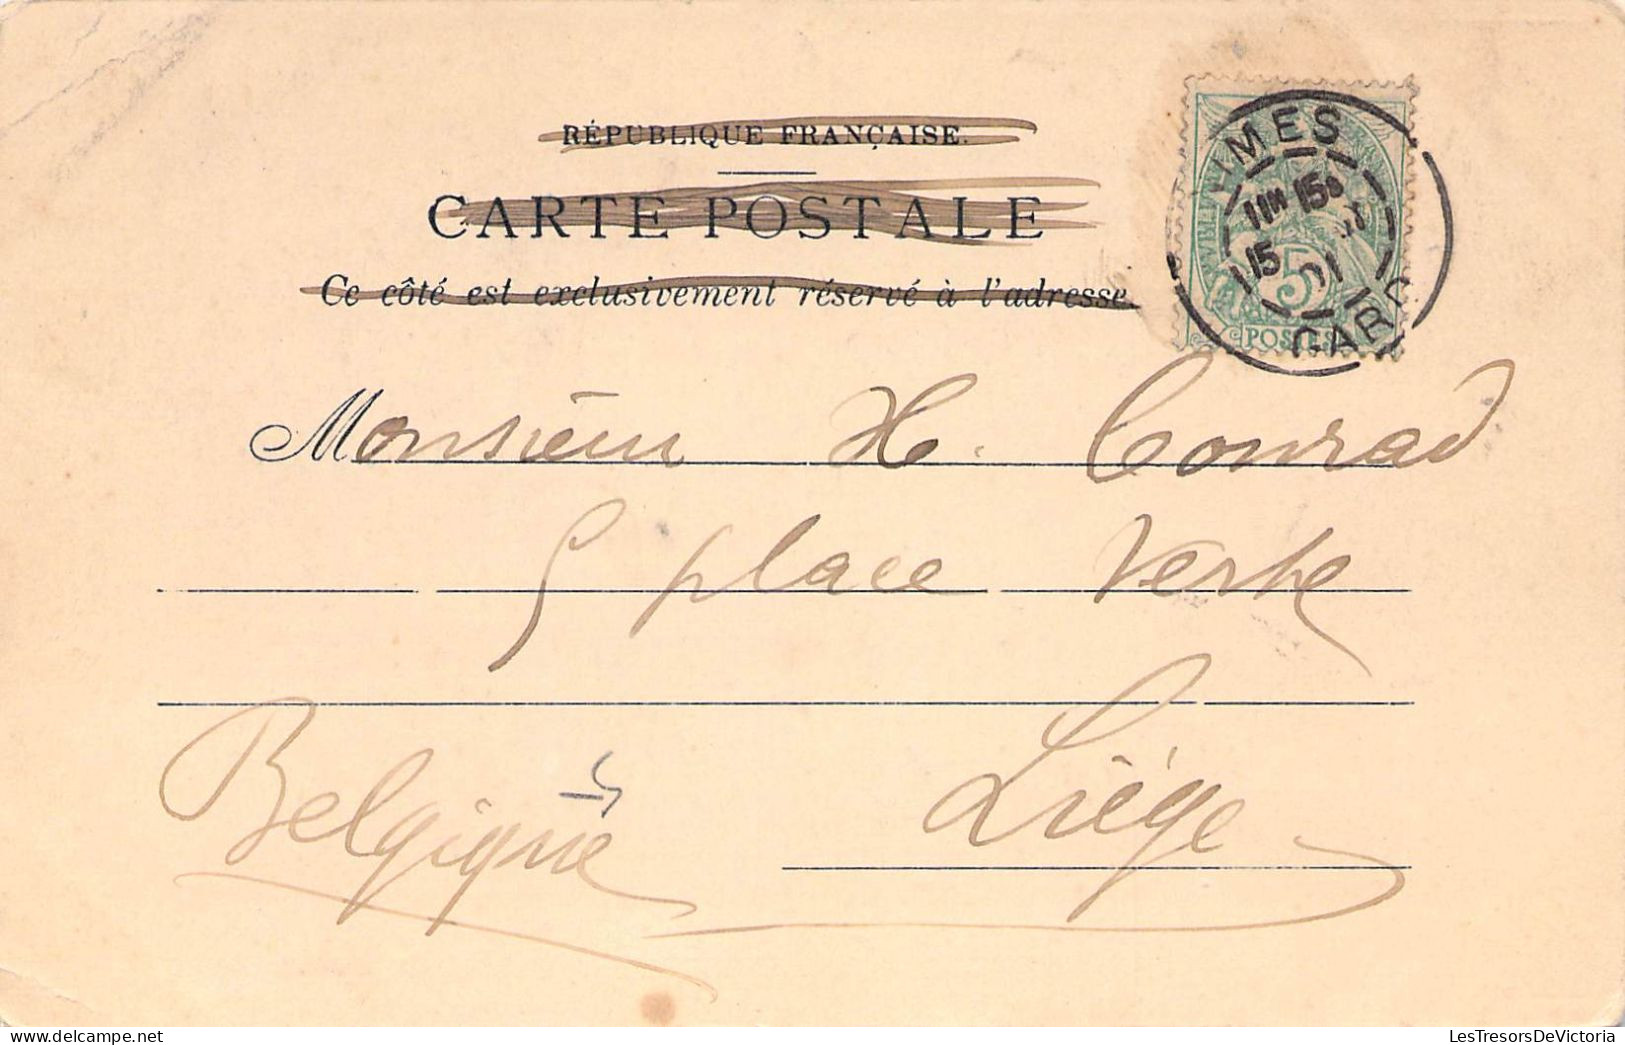 RÉPUBLIQUE FRANÇAISE.
CARTE POSTALE
Ce côté est exclusivement réservé à l'adresse
NIMES
15
01
GARD
5
POSTES
Monsieur H. Conrad
5 place Verte
Liége
Belgique
LesTresorsDeVictoria